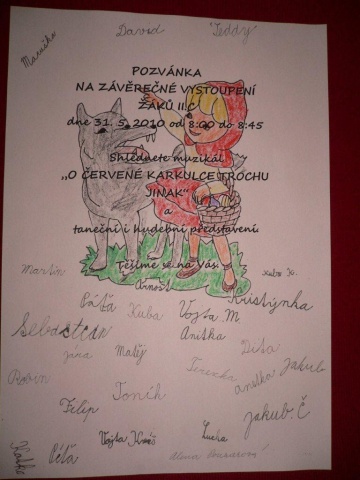 Maruška
David
Teddy
POZVÁNKA
NA ZÁVĚREČNÉ VYSTOUPENÍ
ŽÁKŮ II.C
dne 31. 5. 2010 od 8:00 do 8:45
Shlédnete muzikál
„O ČERVENÉ KARKULCE TROCHU
JINAK"
a
taneční i hudební představení.
Těšíme se na Vás.
Martin
Arnošt
Kristýnka
Péťa
Kuba
Vojta M.
Sebastian
Anitka
Jára
Matěj
Dita
Robin
Terezka
anetka
Jakub
Toník
Filip
Jakub Č
Vojta
Lucka
Péťa
Alena